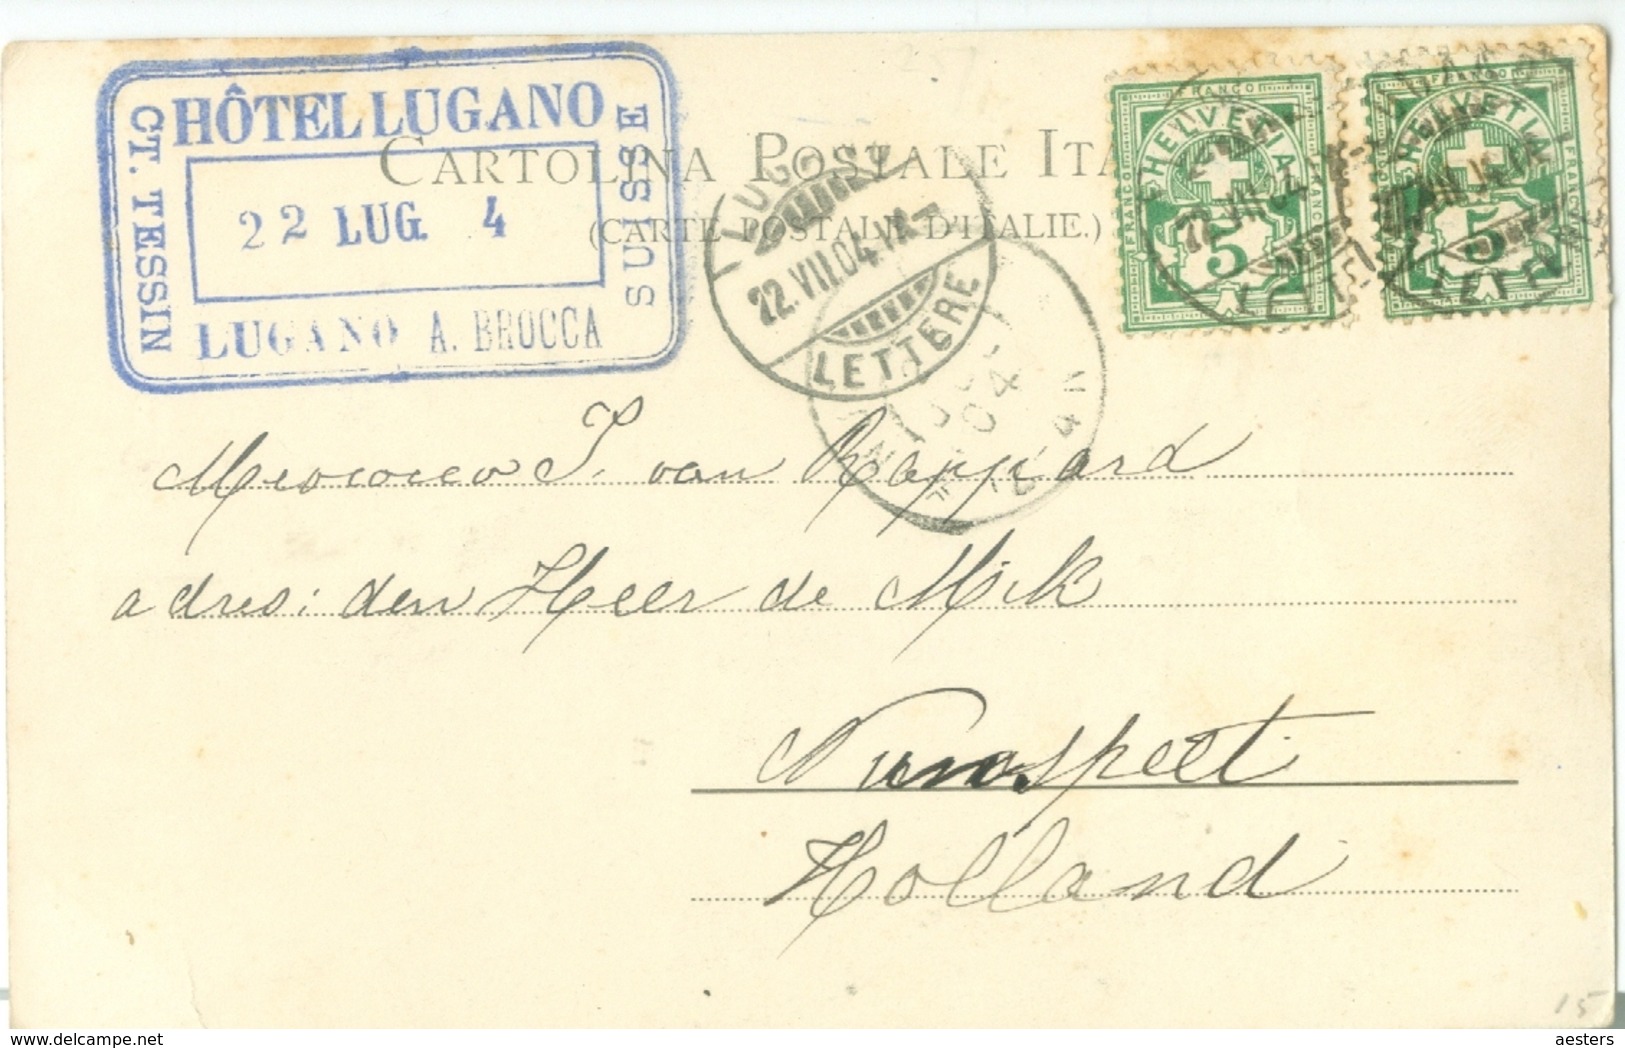 HÔTEL LUGANO
CT. TESSIN
SUISSE
22 LUG. 4
LUGANO A. BROCCA
CARTOLINA POSTALE ITA
(CARTE POSTALE D'ITALIE.)
LUGANO
22.VII.04.IX-
LETTERE
FRANCO
HELVETIA
FRANCO
FRANCO
5
22.VII.04
FRANCO
HELVETIA
FRANCO
5
van Rappard
adres: den Heer de Mik
Nunspeet
Holland
15
aesters